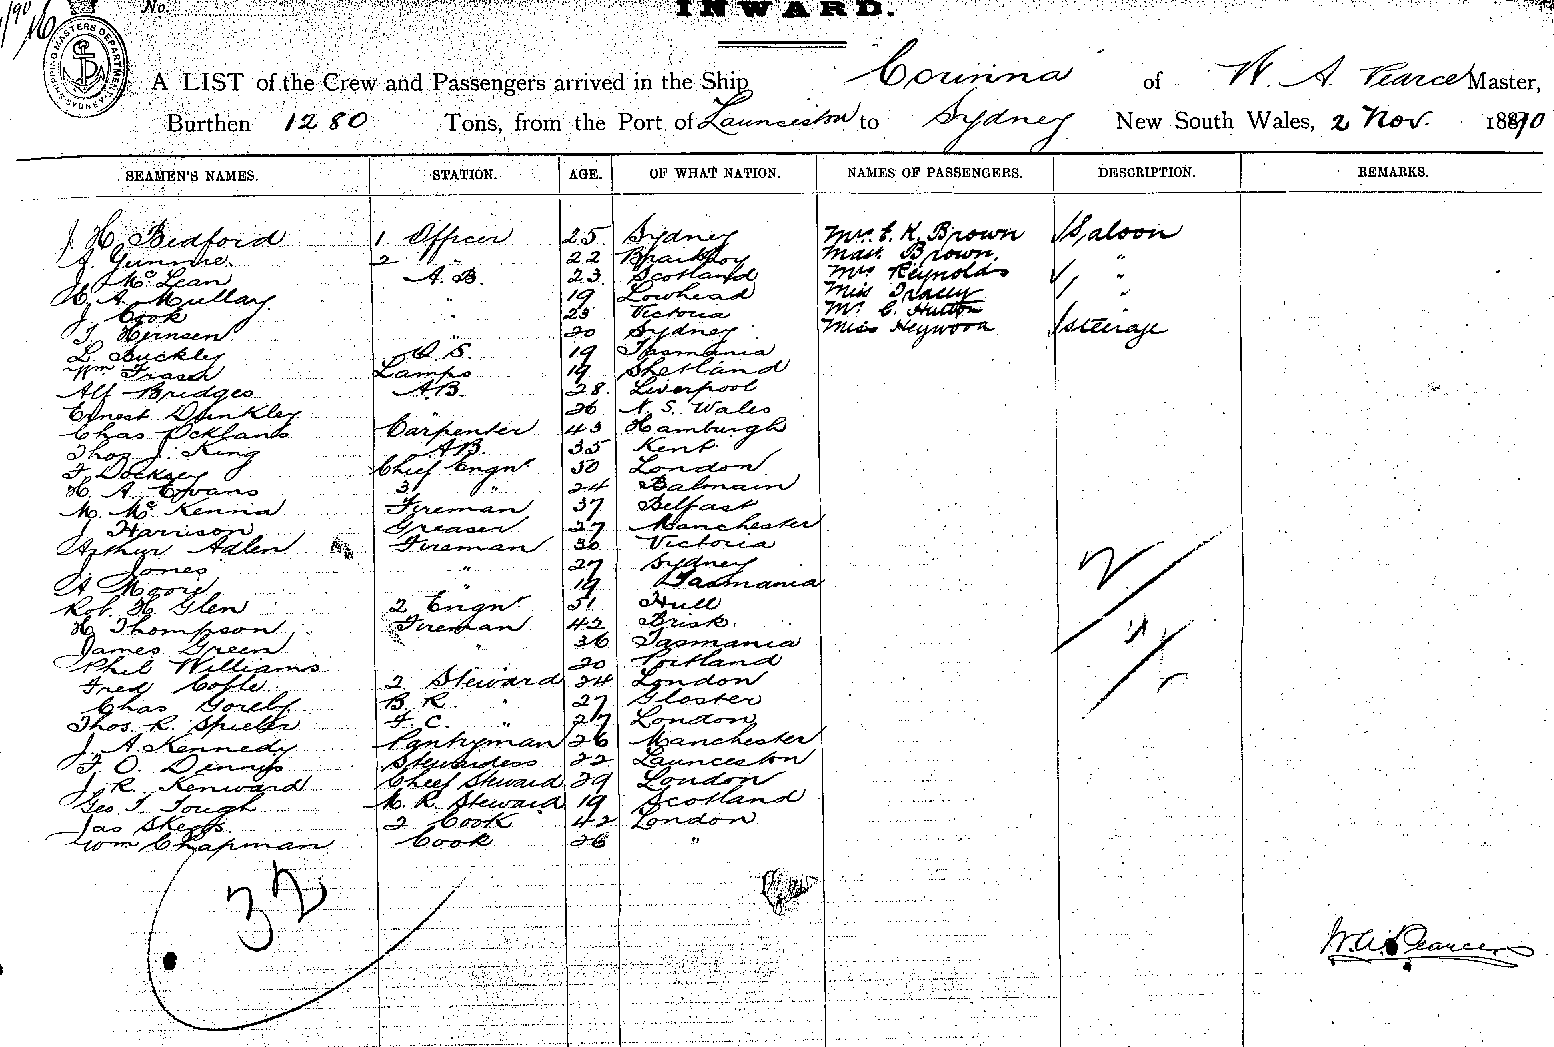 /90
16
No.
INWARD.
A LIST of the Crew and Passengers arrived in the Ship Corinna of W. A. Pearce Master,
Burthen 1280 Tons, from the Port of Launceston to Sydney New South Wales, 2 Nov. 1890
SEAMEN'S NAMES. STATION. AGE. OF WHAT NATION. NAMES OF PASSENGERS. DESCRIPTION. REMARKS.
J. H. Bedford 1 Officer 25 Sydney Mrs. E. K. Brown 1 Saloon
J. Gunnie 2 " 22 Mast. Brown "
J. McLean A.B. 23 Scotland Mrs Reynolds 1 "
C. A. Mullay " 19 Lowhead Miss Tracey 1 "
J. Cook 23 Victoria Mr C. Hutton
T. Hernsen " 20 Sydney Miss Heywood 1 steerage
L. Buckley O.S. 19 Tasmania
Wm Fraser Lamps 19 Shetland
Alf Bridges A.B. 28 Liverpool
Ernest Dunkley 26 N. S. Wales
Chas Carpenter 43 Hamburgh
Thos J. King A.B. 35 Kent
F. Docksey Chief Engnr 50 London
H. A. Evans 3 " 24 Balmain
M. McKenna Fireman 37 Belfast
J. Harrison Greaser 27 Manchester
Arthur Adlen Fireman 30 Victoria
J. Jones " 27 Sydney
A Moore " 19 Tasmania
Rob. H. Glen 2 Engnr 51 Hull
H. Thompson Fireman 42 Brisk.
James Green " 36 Tasmania
Phil Williams 20 Portland
Fred Cofle 2 Steward 24 London
Chas Gorely B. R. " 27 Gloster
Thos. R. Spieler F. C. " 27 London
J. A. Kennedy Pantryman 26 Manchester
F. O. Dennis Stewardess 22 Launceston
J. R. Kenward Chief Steward 29 London
Geo T. Tough M. R. Steward 19 Scotland
Jas Skeggs 2 Cook 42 London
Wm Chapman Cook 26 "
32
W. A. Pearce